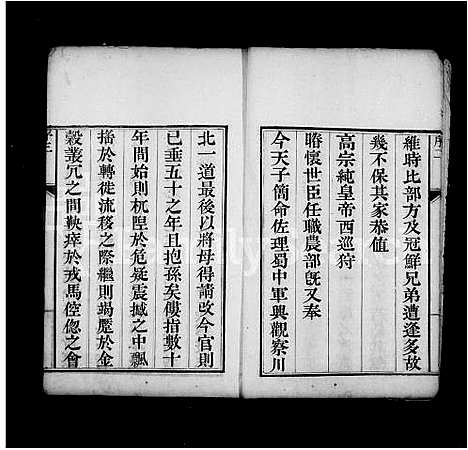 序二
維時比部方及冠鮮兄弟遭逢多故
幾不保其家恭值
高宗純皇帝西巡狩
睠懷世臣任職農部旣又奉
今天子簡命佐理蜀中軍興觀察川
北一道最後以將母得請改今官則
已垂五十之年且抱孫矣僂指數十
年間始則杌隉於危疑震撼之中飄
搖於轉徙流移之際繼則竭蹷於金
穀叢冗之間鞅瘁於戎馬倥傯之會
序三